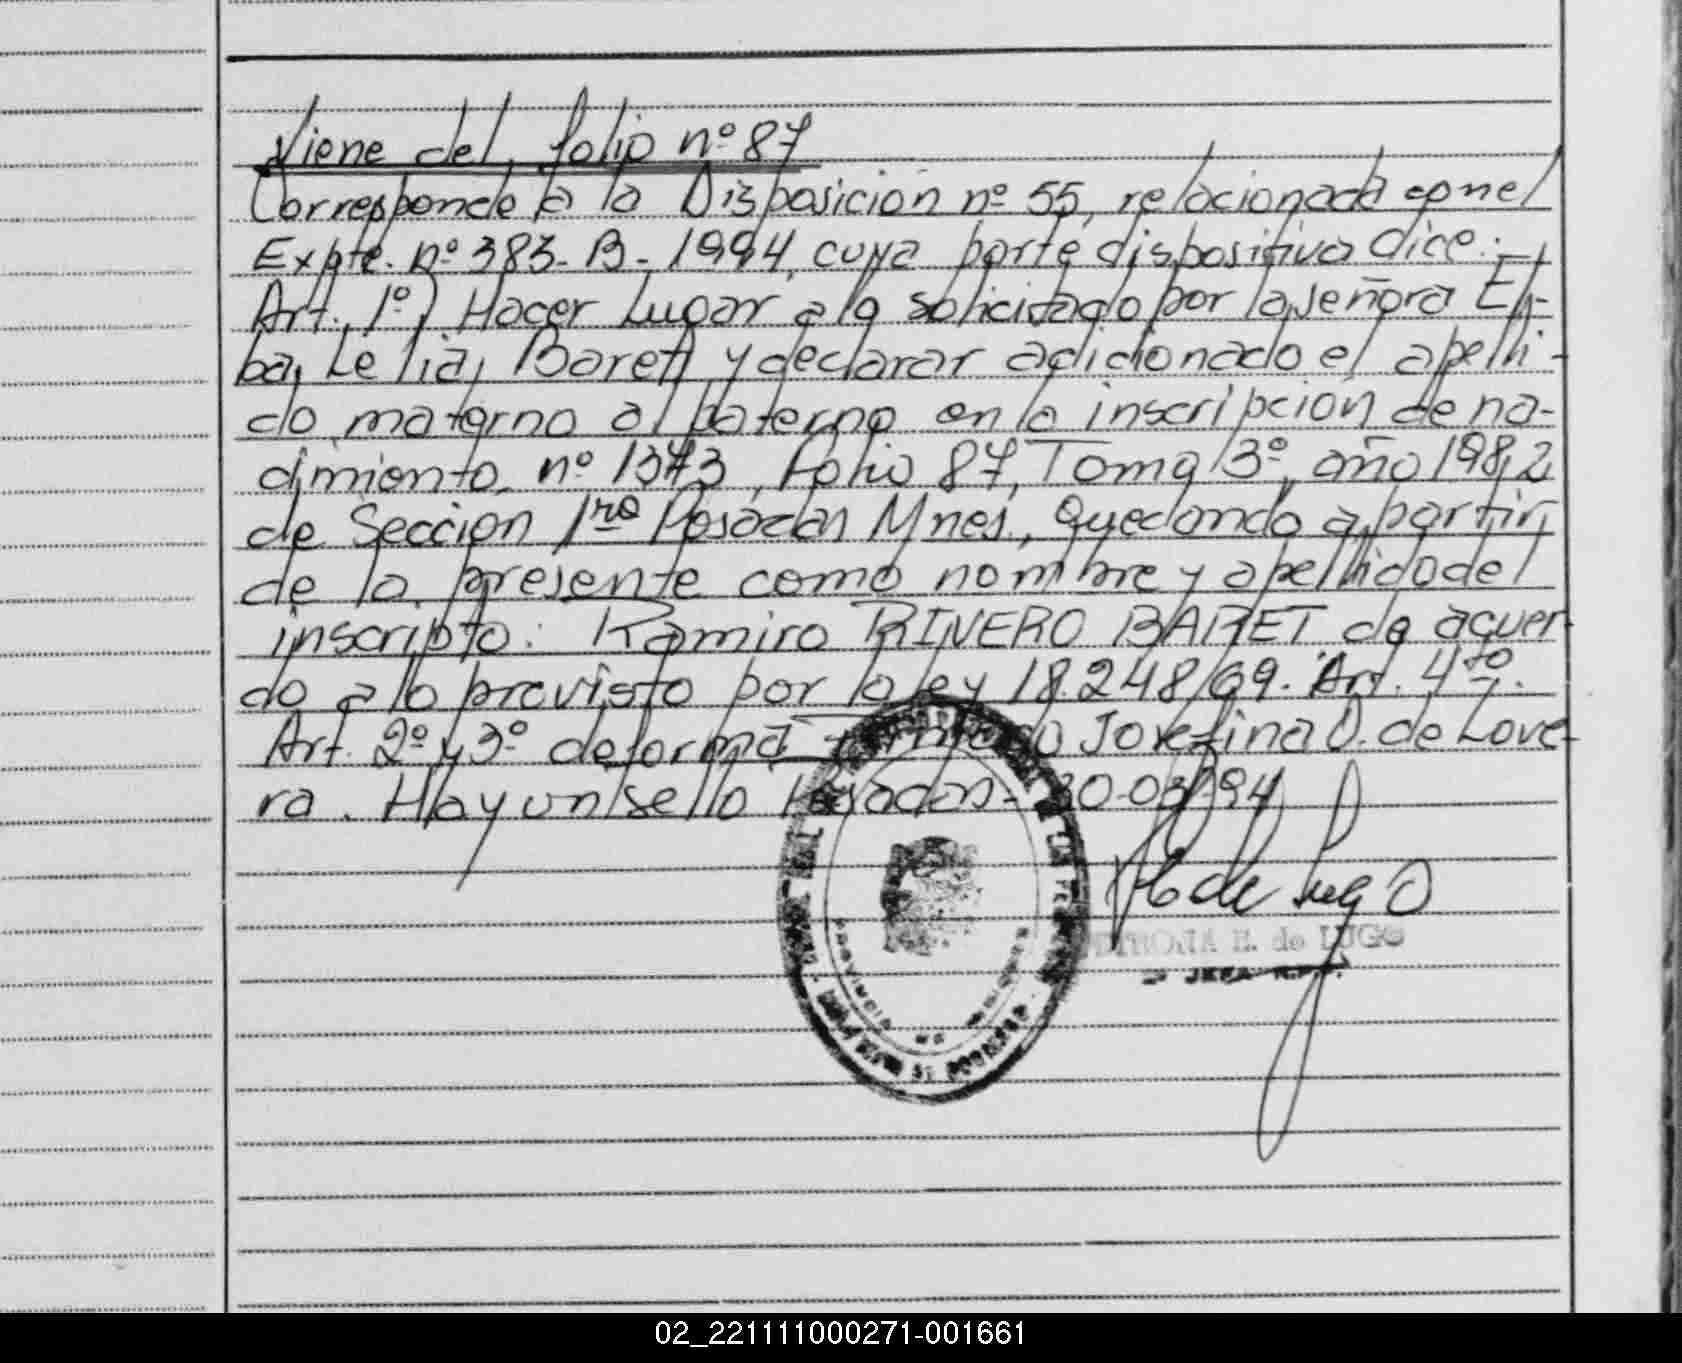 Viene del folio nº 87
Corresponde a la Disposición nº 55, relacionada con el
Expte. nº 383-B-1994, cuya parte dispositiva dice:-
Art. 1º) Hacer Lugar a lo solicitado por la señora El-
ba, Lelia, Barett y declarar adicionado el apelli-
do materno al paterno en la inscripción de na-
cimiento nº 1373, Folio 87, Tomo 3º, año 1982
de Seccion 1ra Posadas Mnes., Quedando a partir
de la presente como nombre y apellido del
inscripto: Ramiro RIVERO BARET de acuer-
do a lo previsto por la ley 18.248/69. Art. 4to.
Art. 2º y 3º de forma firmado Josefina O. de Love-
ra. Hay un sello Posadas- 30-03-94
PROVINCIA DE MISIONES
de Lugo
PETRONA E. de LUGO
JEFA R.P.
02_221111000271-001661